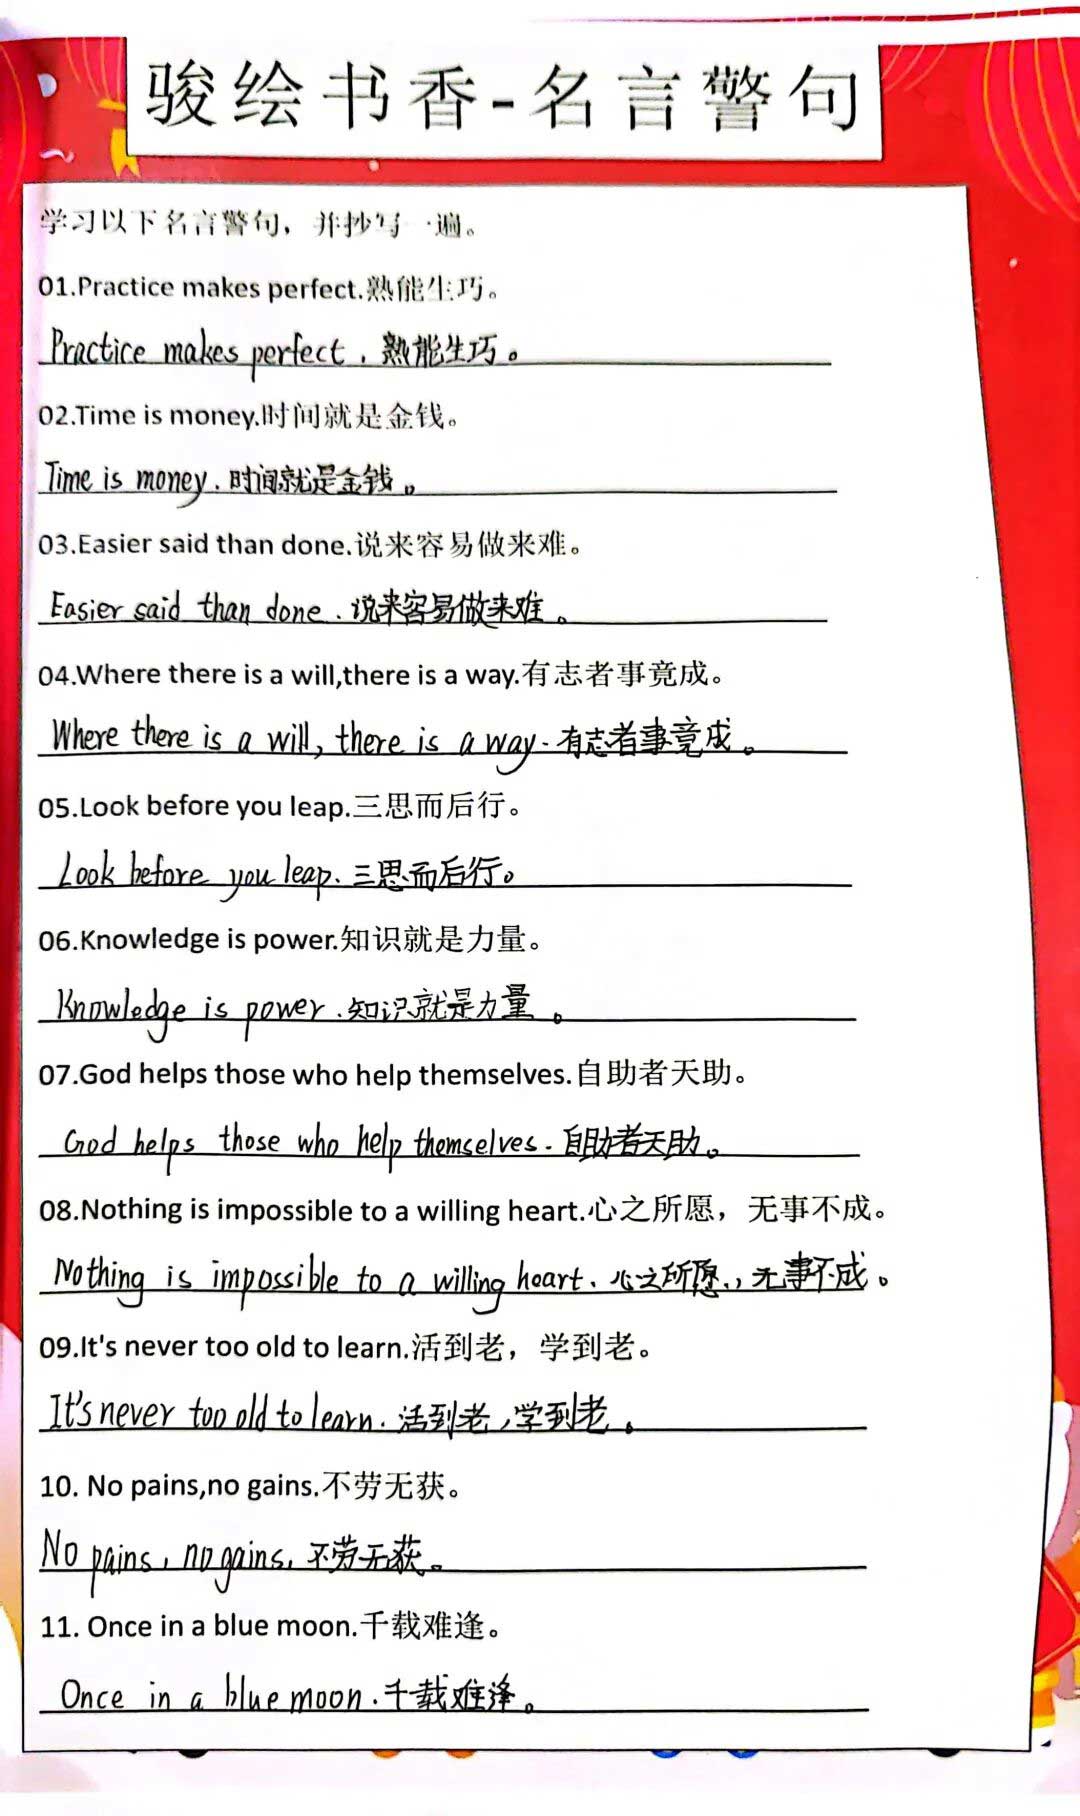 骏绘书香-名言警句
学习以下名言警句，并抄写一遍。
01.Practice makes perfect.熟能生巧。
Practice makes perfect. 熟能生巧。
02.Time is money.时间就是金钱。
Time is money. 时间就是金钱。
03.Easier said than done.说来容易做来难。
Easier said than done. 说来容易做来难。
04.Where there is a will,there is a way.有志者事竟成。
Where there is a will, there is a way. 有志者事竟成。
05.Look before you leap.三思而后行。
Look before you leap. 三思而后行。
06.Knowledge is power.知识就是力量。
Knowledge is power. 知识就是力量。
07.God helps those who help themselves.自助者天助。
God helps those who help themselves. 自助者天助。
08.Nothing is impossible to a willing heart.心之所愿，无事不成。
Nothing is impossible to a willing heart. 心之所愿，无事不成。
09.It's never too old to learn.活到老，学到老。
It's never too old to learn. 活到老，学到老。
10. No pains,no gains.不劳无获。
No pains, no gains. 不劳无获。
11. Once in a blue moon.千载难逢。
Once in a blue moon. 千载难逢。